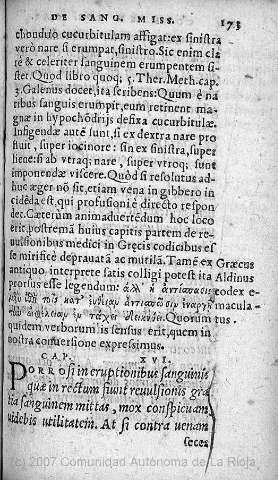 DE SANG. MISS. 173
chondrio cucurbitulam affigat: ex sinistra
verò nare si erumpat, sinistro. Sic enim cla
rè & celeriter sanguinem erumpentem si-
stet. Quod libro quoq; 5. Ther. Meth. cap.
3. Galenus docet, ita scribens: Quum è na
ribus sanguis erumpit, eum retinent mag-
næ in hypochōdrijs defixa cucurbitulæ.
Infigendæ autē sunt, si ex dextra nare pro
fluit, super iocinore: sin ex sinistra, super
liene: si ab vtraq; nare, super vtroq; sunt
imponendæ viscere. Quòd si resolutus ad-
huc æger nō sit, etiam vena in gibbero in
cidēda est, qui profusioni è directo respon
det. Cæterùm animaduertēdum hoc loco
erit, postrema huius capitis partem de re-
uulsionibus medici in Græcis codicibus es
se mirificè deprauatā ac mutilā. Tamē ex Græcus
antiquo interprete satis colligi potest ita Aldinus
prorsus esse legendum: codex e-
macula-
Quorum tus.
quidem verborum is sensus erit, quem in
nostra conuersione expressimus.
CAP. XVI.
PORRO si in eruptionibus sanguinis
quæ in rectum fiunt reuulsionis gra
tia sanguinem mittas, mox conspicuam
videbis vtilitatem. At si contra venam
seces
(c) 2007 Comunidad Autónoma de La Rioja